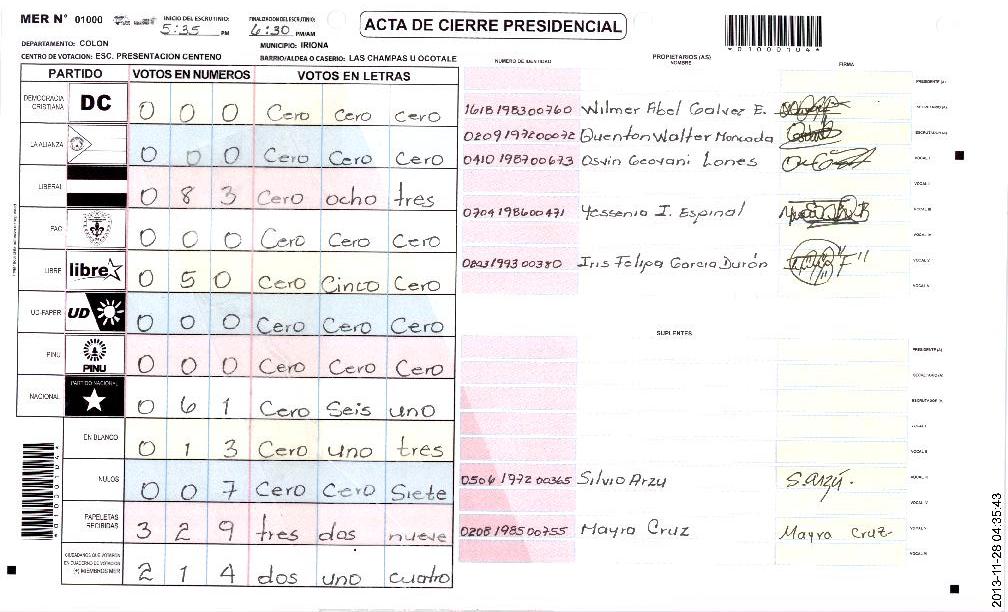 MER N° 01000
INICIO DEL ESCRUTINIO: 5:35 PM
FINALIZACION DEL ESCRUTINIO: 6:30 PM/AM
ACTA DE CIERRE PRESIDENCIAL
*01000104*
DEPARTAMENTO: COLON
MUNICIPIO: IRIONA
CENTRO DE VOTACION: ESC. PRESENTACION CENTENO
BARRIO/ALDEA O CASERIO: LAS CHAMPAS U OCOTALE
PARTIDO VOTOS EN NUMEROS VOTOS EN LETRAS
DEMOCRACIA CRISTIANA DC 0 0 0 Cero Cero cero
LA ALIANZA 0 0 0 Cero Cero Cero
LIBERAL 0 8 3 Cero ocho tres
PAC 0 0 0 Cero Cero Cero
LIBRE libre 0 5 0 Cero Cinco Cero
UD-FAPER UD 0 0 0 Cero Cero Cero
PINU PINU 0 0 0 Cero Cero Cero
NACIONAL PARTIDO NACIONAL 0 6 1 Cero Seis uno
EN BLANCO 0 1 3 Cero uno tres
NULOS 0 0 7 Cero Cero Siete
PAPELETAS RECIBIDAS 3 2 9 tres dos nueve
CIUDADANOS QUE VOTARON EN CUADERNO DE VOTACION (+) MIEMBROS MER 2 1 4 dos uno cuatro
NUMERO DE IDENTIDAD PROPIETARIOS (AS) NOMBRE FIRMA
PRESIDENTE (A)
1618198300760 Wilmer Abel Galvez E. SECRETARIO (A)
0209197200072 Quenton Walter Moncada ESCRUTADOR (A)
0410198700673 Osvin Geovani Lones VOCAL I
VOCAL II
0704198600471 Yessenia I. Espinal VOCAL III
VOCAL IV
199300380 Iris Felipa Garcia Durón VOCAL V
VOCAL VI
SUPLENTES
PRESIDENTE (A)
SECRETARIO (A)
ESCRUTADOR (A)
VOCAL I
VOCAL II
0506197200365 Silvio Arzu S. Arzú. VOCAL III
VOCAL IV
0208198500755 Mayra Cruz Mayra Cruz VOCAL V
VOCAL VI
*01000104*
2013-11-28 04:35:43